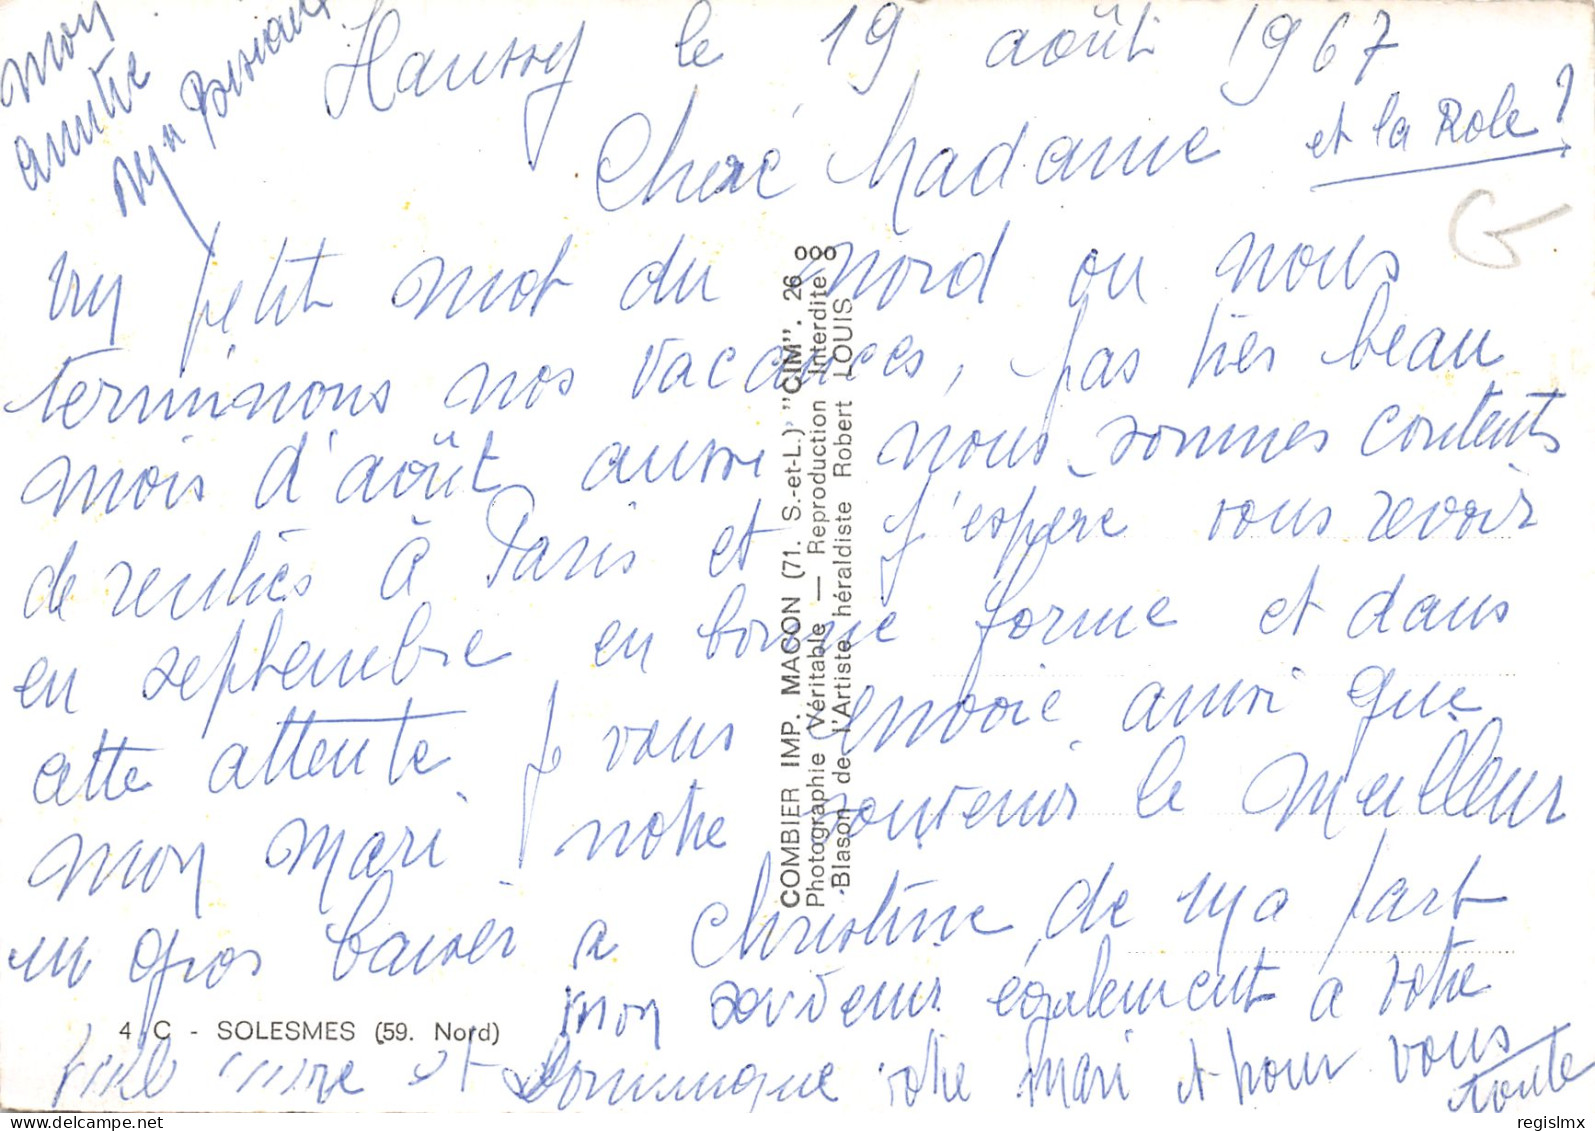 Haussy le 19 août 1967
Chère Madame et la Role ?
un petit mot du nord ou nous
terminons nos vacances, pas très beau
mois d'août aussi nous sommes contents
de rentrés à Paris et j'espère vous revoir
en septembre en bonne forme et dans
cette attente je vous envoie ainsi que
mon mari notre souvenir le meilleur
un gros baiser a Christine de ma part
mon souvenir également a votre
fille et Dominique votre mari et pour vous
toute
mon
amitié
COMBIER IMP. MACON (71. S.-et-L.) "CIM". 26
Photographie Véritable — Reproduction Interdite
Blason de l'Artiste héraldiste Robert LOUIS
4 C - SOLESMES (59. Nord)
regislmx